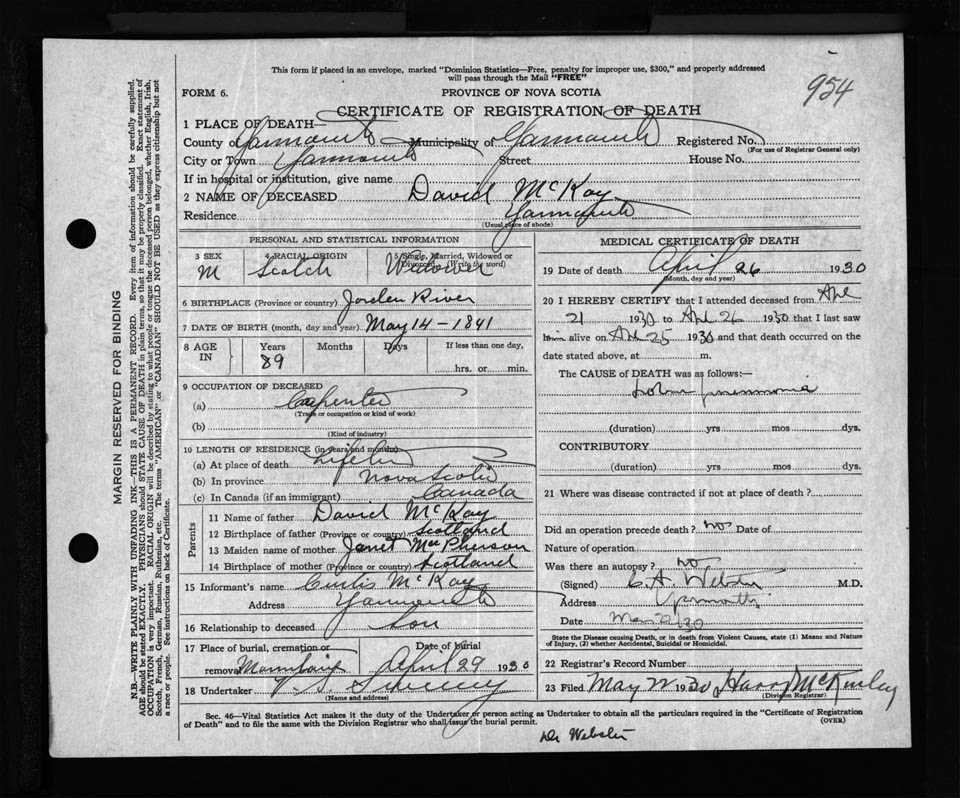 This form if placed in an envelope, marked "Dominion Statistics—Free, penalty for improper use, $300," and properly addressed
will pass through the Mail "FREE"
954
FORM 6.
PROVINCE OF NOVA SCOTIA
CERTIFICATE OF REGISTRATION OF DEATH
1 PLACE OF DEATH—
County of Yarmouth Municipality of Yarmouth Registered No.
(For use of Registrar General only)
City or Town Yarmouth Street House No.
If in hospital or institution, give name
2 NAME OF DECEASED David McKay
Residence Yarmouth
(Usual place of abode)
PERSONAL AND STATISTICAL INFORMATION
3 SEX 4 RACIAL ORIGIN 5 Single, Married, Widowed or Divorced (Write the word)
M Scotch Widower
6 BIRTHPLACE (Province or country) Jorden River
7 DATE OF BIRTH (month, day and year) May 14 - 1841
8 AGE IN Years Months Days If less than one day,
89 hrs. or min.
9 OCCUPATION OF DECEASED
(a) Carpenter
(Trade or occupation or kind of work)
(b)
(Kind of industry)
10 LENGTH OF RESIDENCE (in years and months)
(a) At place of death Lifetime
(b) In province Nova Scotia
(c) In Canada (if an immigrant) Canada
Parents
11 Name of father David McKay
12 Birthplace of father (Province or country) Scotland
13 Maiden name of mother Janet MacPherson
14 Birthplace of mother (Province or country) Scotland
15 Informant's name Curtis McKay
Address Yarmouth
16 Relationship to deceased Son
17 Place of burial, cremation or Date of burial
removal Mountain April 29 1930
18 Undertaker Sweeny
(Name and address)
MEDICAL CERTIFICATE OF DEATH
19 Date of death April 26 1930
(Month, day and year)
20 I HEREBY CERTIFY that I attended deceased from Apl
21 1930 to Apl 26 1930 that I last saw
him alive on Apl 25 1930 and that death occurred on the
date stated above, at m.
The CAUSE of DEATH was as follows:—
Lobar pneumonia
(duration) yrs mos dys.
CONTRIBUTORY
(duration) yrs mos dys.
21 Where was disease contracted if not at place of death?
Did an operation precede death? no Date of
Nature of operation
Was there an autopsy? no
(Signed) C. A. Webster M.D.
Address Yarmouth
Date May 2/30
State the Disease causing Death, or in death from Violent Causes, state (1) Means and Nature
of Injury, (2) whether Accidental, Suicidal or Homicidal.
22 Registrar's Record Number
23 Filed May 2 1930 Harry McKinley
(Division Registrar)
Sec. 46—Vital Statistics Act makes it the duty of the Undertaker or person acting as Undertaker to obtain all the particulars required in the "Certificate of Registration
of Death" and to file the same with the Division Registrar who shall issue the burial permit. (OVER)
Dr Webster
MARGIN RESERVED FOR BINDING
N.B.—WRITE PLAINLY WITH UNFADING INK—THIS IS A PERMANENT RECORD. Every item of information should be carefully supplied.
AGE should be stated EXACTLY. PHYSICIANS should STATE CAUSE OF DEATH in plain terms, so that it may be properly classified. Exact statement of
OCCUPATION is very important. RACIAL ORIGIN will be described by stating to what people or tongue the deceased person belonged, whether English, Irish,
Scotch, French, German, Russian, Ruthenian, etc. The terms "AMERICAN" or "CANADIAN" SHOULD NOT BE USED as they express citizenship but not
a race or people. See instructions on back of Certificate.